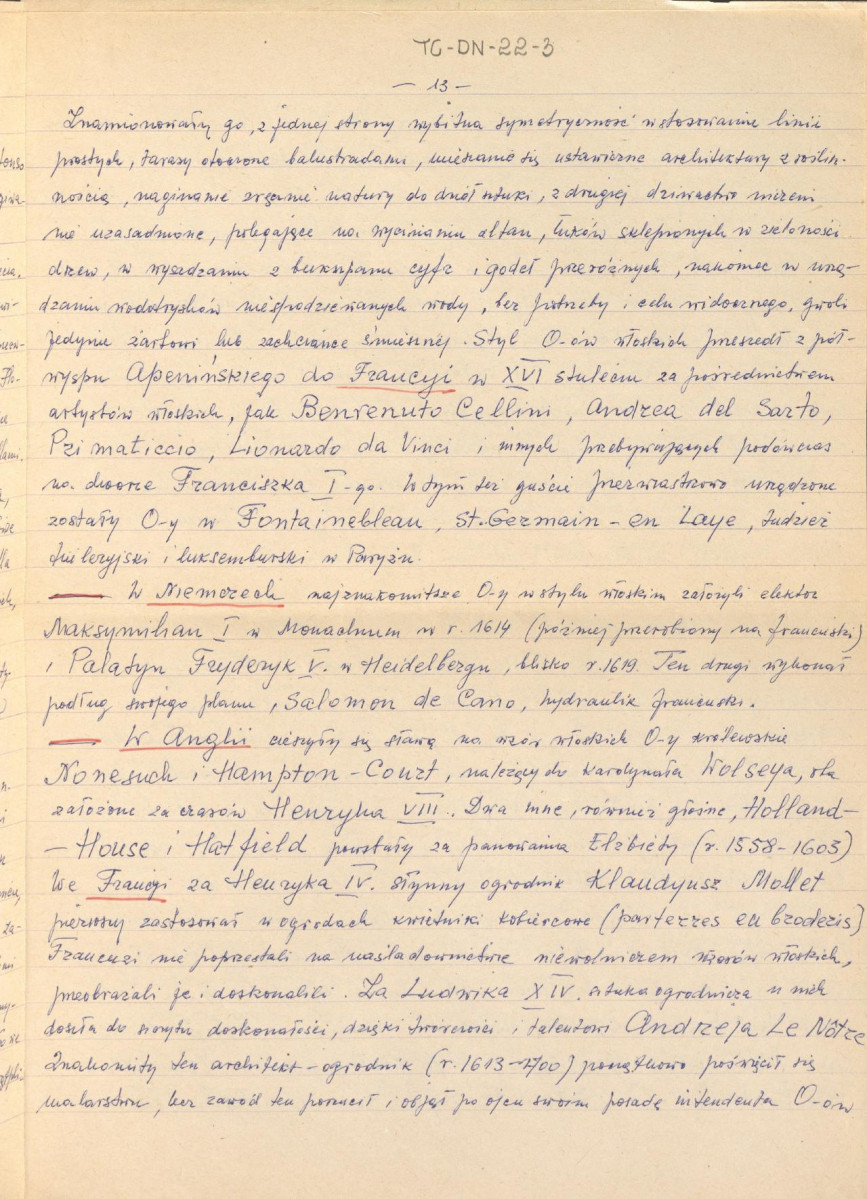 TG-DN-22-3
— 13 —
Znamionowały go, z jednej strony wybitna symetryczność w stosowaniu linii
prostych, tarasy otoczone balustradami, mieszanie się ustawiczne architektury z roślin-
nością, naginanie zręczne natury do dzieł sztuki, z drugiej dziwactwo niczem
nie uzasadnione, polegające na wycinaniu altan, łuków sklepionych w zieloności
drzew, w wysadzaniu z bukszpanu cyfr i godeł przeróżnych, nakoniec w urzą-
dzaniu wodotrysków niespodziewanych wody, bez potrzeby i celu widocznego, gwoli
jedynie żartowi lub zachciance śmiesznej. Styl O-ów włoskich przeszedł z pół-
wyspu Apenińskiego do Francyi w XVI stuleciu za pośrednictwem
artystów włoskich, jak Benvenuto Cellini, Andrea del Sarto,
Primaticcio, Lionardo da Vinci i innych przebywających podówczas
na dworze Franciszka I-go. W tym też guście pierwiastkowo urządzone
zostały O-y w Fontainebleau, St.-Germain-en Laye, tudzież
tuileryjski i luksemburski w Paryżu.
— W Niemczech najznakomitsze O-y w stylu włoskim założyli elektor
Maksymilian I w Monachium w r. 1614 (później przerobiony na francuski)
i Palatyn Fryderyk V. w Heidelbergu, blisko r. 1619. Ten drugi wykonał
podług swojego planu, Salomon de Cano, hydraulik francuski.
— W Anglii cieszyły się sławą na wzór włoskich O-y królewskie
Nonesuch i Hampton-Court, należący do kardynała Wolseya, oba
założone za czasów Henryka VIII. Dwa inne, również głośne, Holland-
—House i Hatfield powstały za panowania Elżbiety (r. 1558-1603)
We Francyi za Henryka IV. słynny ogrodnik Klaudyusz Mollet
pierwszy zastosował w ogrodach kwietniki kobiercowe (parterres en broderis)
Francuzi nie poprzestali na naśladownictwie niewolniczem wzorów włoskich,
przeobrażali je i doskonalili. Za Ludwika XIV. sztuka ogrodnicza u nich
doszła do szczytu doskonałości, dzięki twórczości i talentowi Andrzeja Le Nôtre
Znakomity ten architekt-ogrodnik (r. 1613-1700) początkowo poświęcił się
malarstwu, lecz zawód ten porzucił i objął po ojcu swoim posadę intendenta O-ów